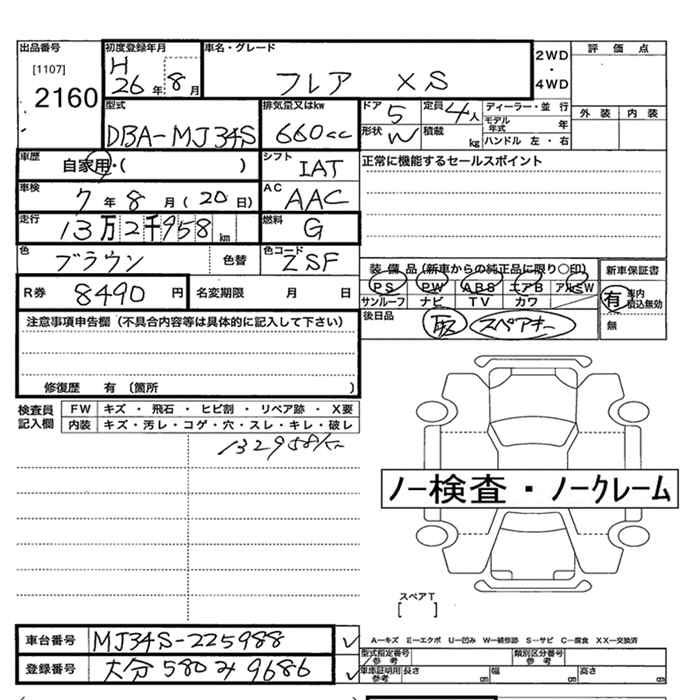 出品番号
[1107]
2160
初度登録年月
H
26年 8月
車名・グレード
フレア XS
2WD
・
4WD
評価点
外装 内装
型式
DBA-MJ34S
排気量又はkw
660cc
ドア 5
定員 4人
形状 W
積載 kg
ディーラー・並行
モデル年式 年
ハンドル 左・右
車歴
自家用・( )
シフト
IAT
正常に機能するセールスポイント
車検
7年 8月 (20日)
AC
AAC
走行
13万2千958km
燃料
G
色
ブラウン
色替
色コード
ZSF
装備品(新車からの純正品に限り○印)
PS PW ABS エアB アルミW
サンルーフ ナビ TV カワ
新車保証書
有
車内積込無効
無
R券
8490円
名変期限 月 日
後日品
取 スペアキー
注意事項申告欄(不具合内容等は具体的に記入して下さい)
修復歴 有(箇所 )
検査員記入欄
FW キズ・飛石・ヒビ割・リペア跡・X要
内装 キズ・汚レ・コゲ・穴・スレ・キレ・破レ
132958km
ノー検査・ノークレーム
スペアT
[ ]
車台番号
MJ34S-225988
登録番号
大分 580 み 9686
A―キズ E―エクボ U―凹み W―補修跡 S―サビ C―腐食 XX―交換済
型式指定番号 参考
類別区分番号 参考
車庫証明用 参考 長さ cm 幅 cm 高さ cm